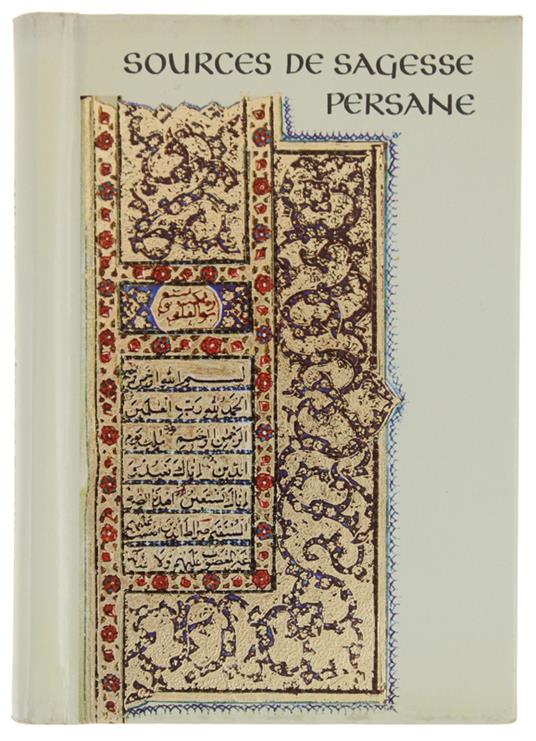 SOURCES DE SAGESSE
PERSANE
بسم الله الرحمن الرحيم
الحمد لله رب العلمين
الرحمن الرحيم ملك يوم
الدين اياك نعبد و
اياك نستعين اهدنا الصر
المستقيم صراط الذين عليهم
المغضوب عليهم ولا